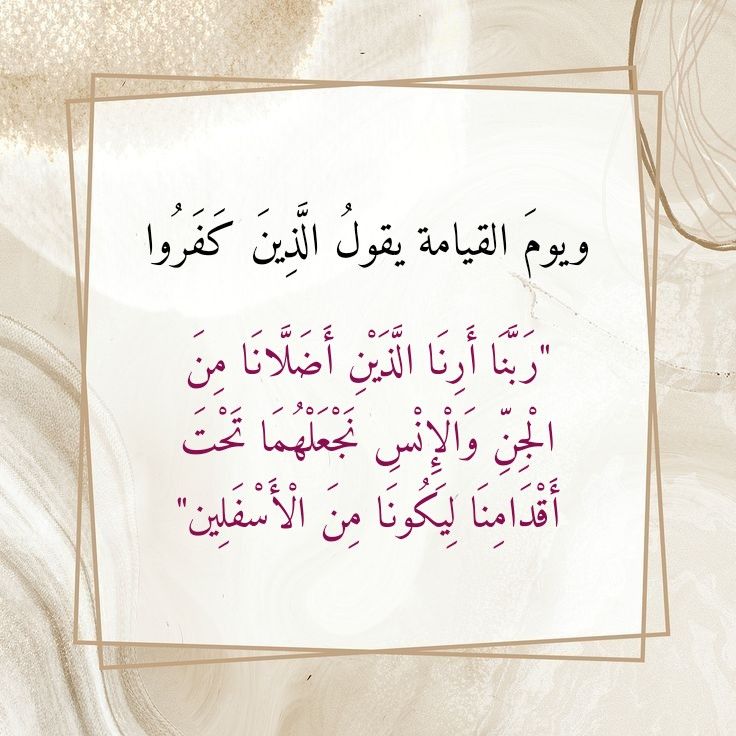 ويومَ القيامة يقولُ الَّذِينَ كَفَرُوا
"رَبَّنَا أَرِنَا الَّذَيْنِ أَضَلَّانَا مِنَ
الْجِنِّ وَالْإِنْسِ نَجْعَلْهُمَا تَحْتَ
أَقْدَامِنَا لِيَكُونَا مِنَ الْأَسْفَلِين"